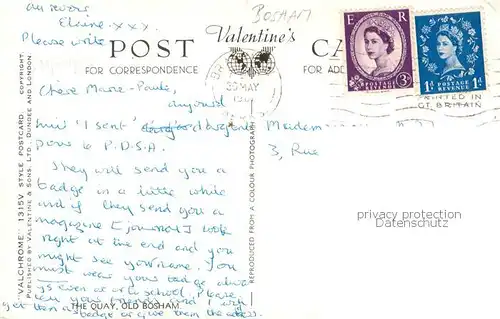 au revoir
Elaine xxx
Please write
BOSHAM
Valentine's
POST CA
FOR CORRESPONDENCE FOR ADD
E R
POSTAGE REVENUE
3D
POSTAGE REVENUE
1D
MAY
PRINTED IN
GT. BRITAIN
Chere Marie-Paule,
aujourd
hui I sent
pour le P.D.S.A.
They will send you a
badge in a little while
and if they send you a
magazine [journal] look
right at the end and you
might see your name. You
must wear your badge alwa-
ys even at school. Please
tell your friends and I will
get them a badge or give them the address.
Madem
3, Rue
"VALCHROME" 1315V STYLE POSTCARD. COPYRIGHT.
PUBLISHED BY VALENTINE & SONS, LTD., DUNDEE AND LONDON.
REPRODUCED FROM A COLOUR PHOTOGRAPH
privacy protection
Datenschutz
THE QUAY, OLD BOSHAM.